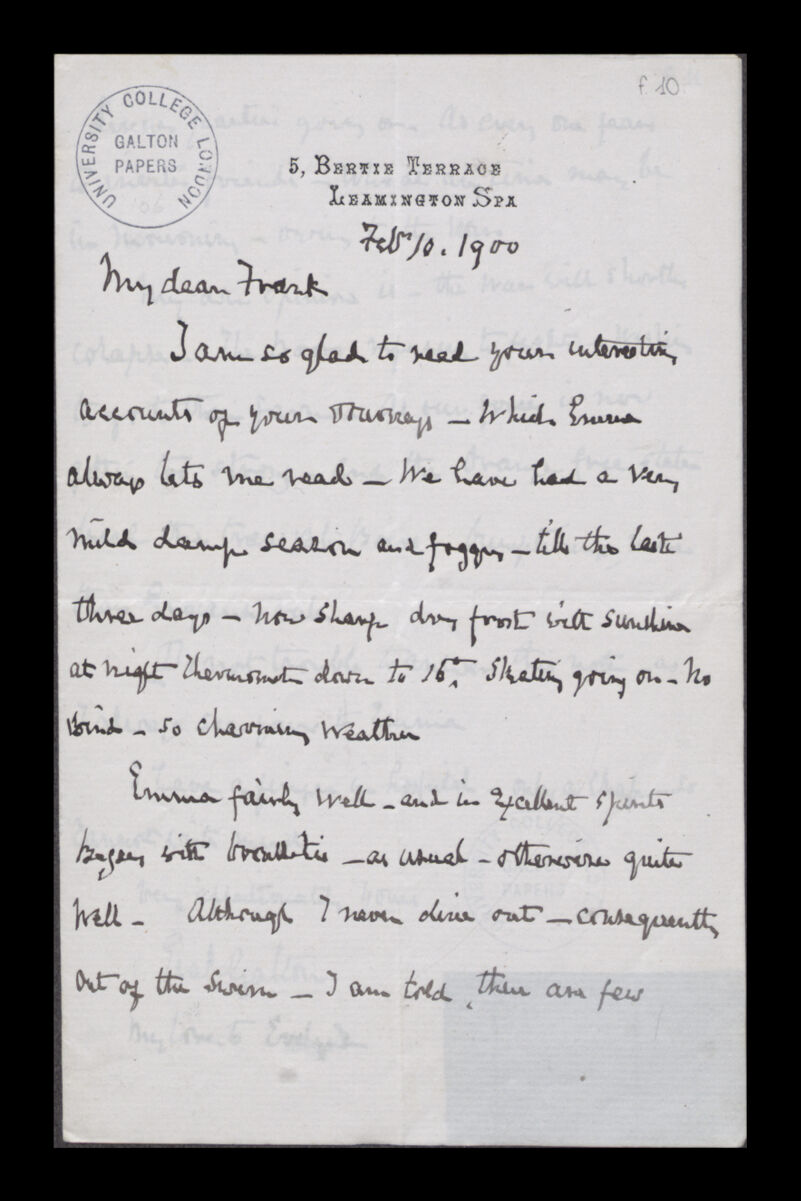 f. 10
UNIVERSITY COLLEGE LONDON
GALTON
PAPERS
5, BERTIE TERRACE
LEAMINGTON SPA
Feby 10. 1900
My dear Frank
I am so glad to read your interesting
accounts of your - Which Emma
always lets me read - We have had a very
mild damp season and foggy - till the last
three days - now sharp dry frost with sunshine
at night Thermometer down to 16°. Skating going on - No
Wind - so charming Weather
Emma fairly Well - and in Excellent spirits
with bronchitis - as usual - otherwise quite
Well - Although I never dine out - consequently
out of the swim - I am told, there are few